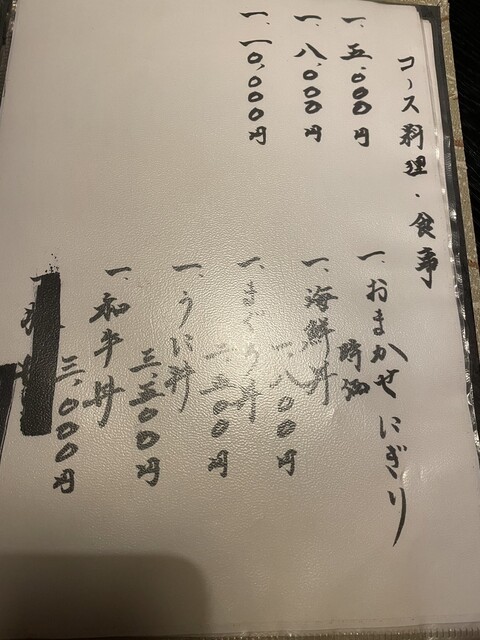 コース料理・食事
一、五、〇〇〇円
一、八、〇〇〇円
一、一〇、〇〇〇円
一、おまかせにぎり
時価
一、海鮮丼
一、八〇〇円
一、まぐろ丼
二、五〇〇円
一、うに丼
三、五〇〇円
一、和牛丼
三、〇〇〇円